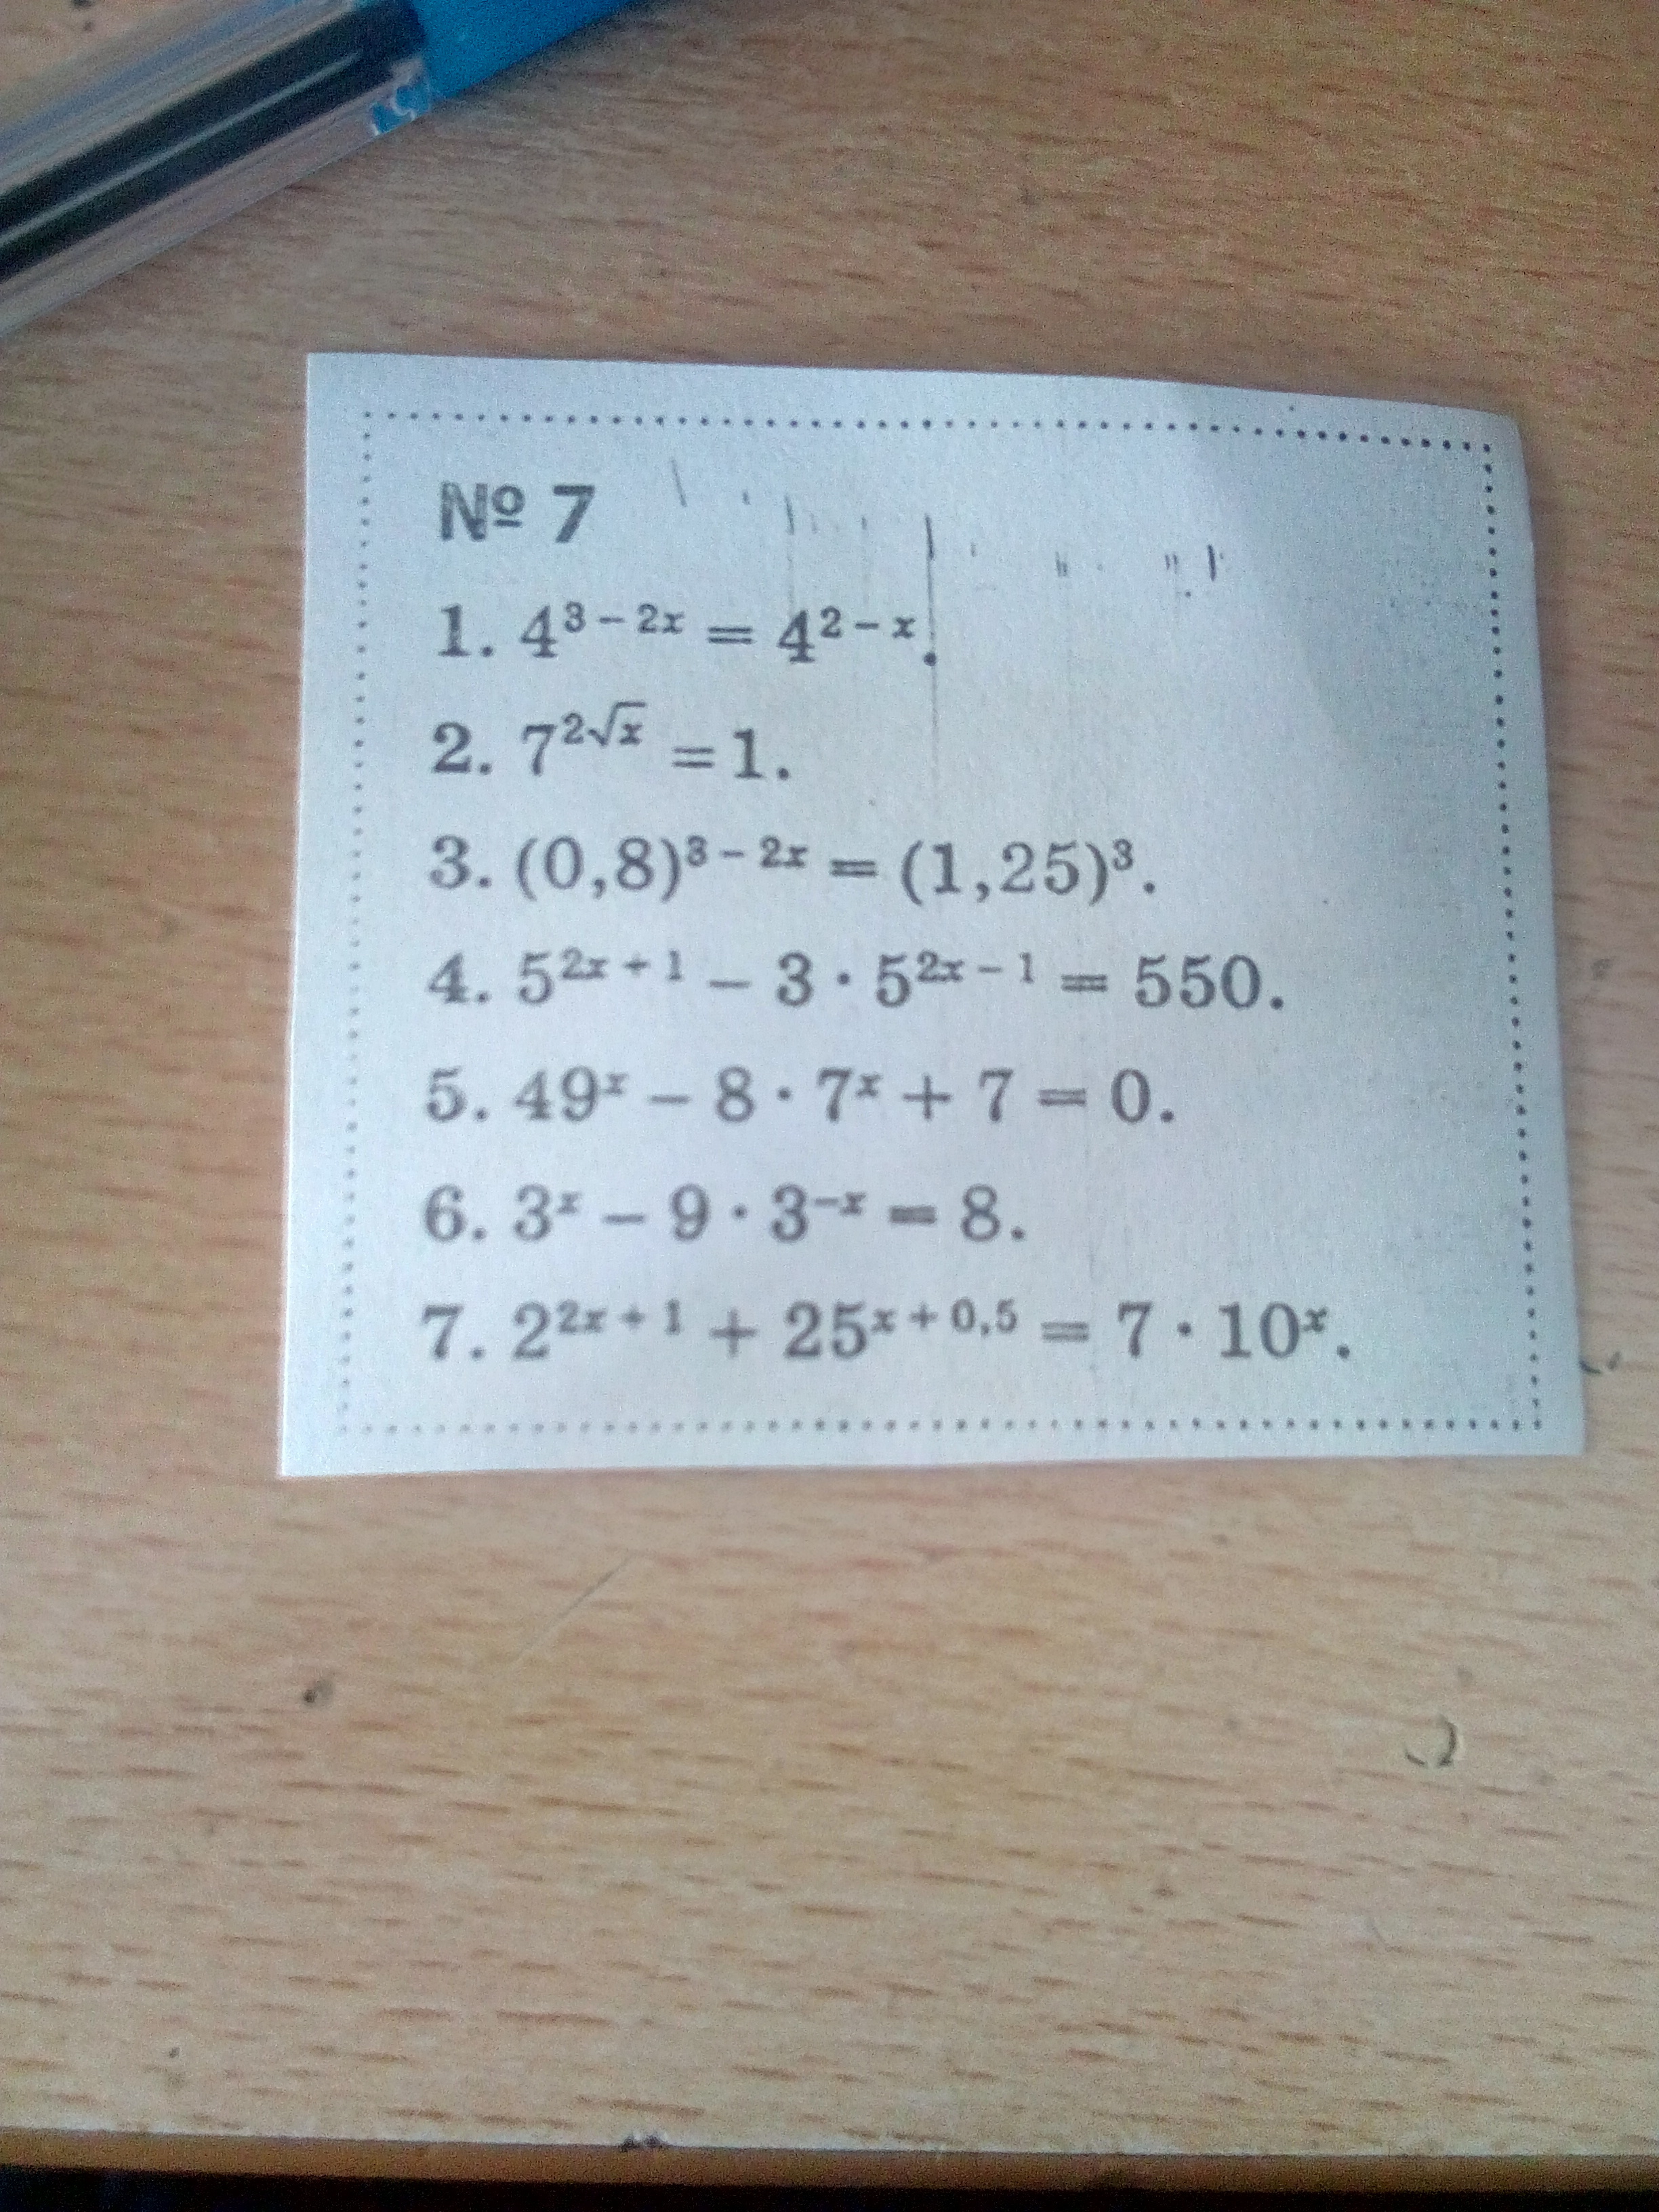 № 7
1. 4^{3 – 2x} = 4^{2 – x}.
2. 7^{2√x} = 1.
3. (0,8)^{3 – 2x} = (1,25)^3.
4. 5^{2x + 1} – 3 · 5^{2x – 1} = 550.
5. 49^x – 8 · 7^x + 7 = 0.
6. 3^x – 9 · 3^{–x} = 8.
7. 2^{2x + 1} + 25^{x + 0,5} = 7 · 10^x.